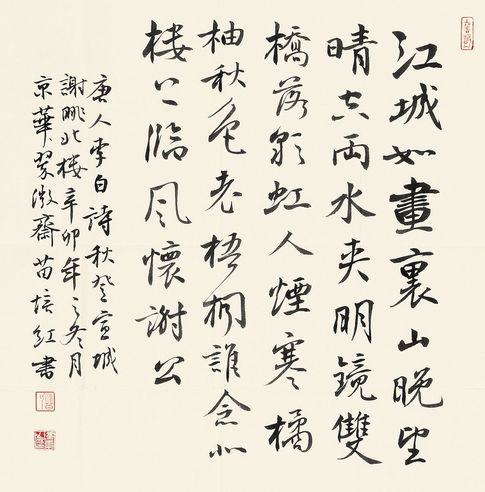 江城如畫裏山晚望
晴空兩水夾明鏡雙
橋落彩虹人煙寒橘
柚秋色老梧桐誰念北
樓上臨風懷謝公
唐人李白詩秋登宣城
謝朓北樓辛卯年之冬月
京華翠微齋苗培紅書